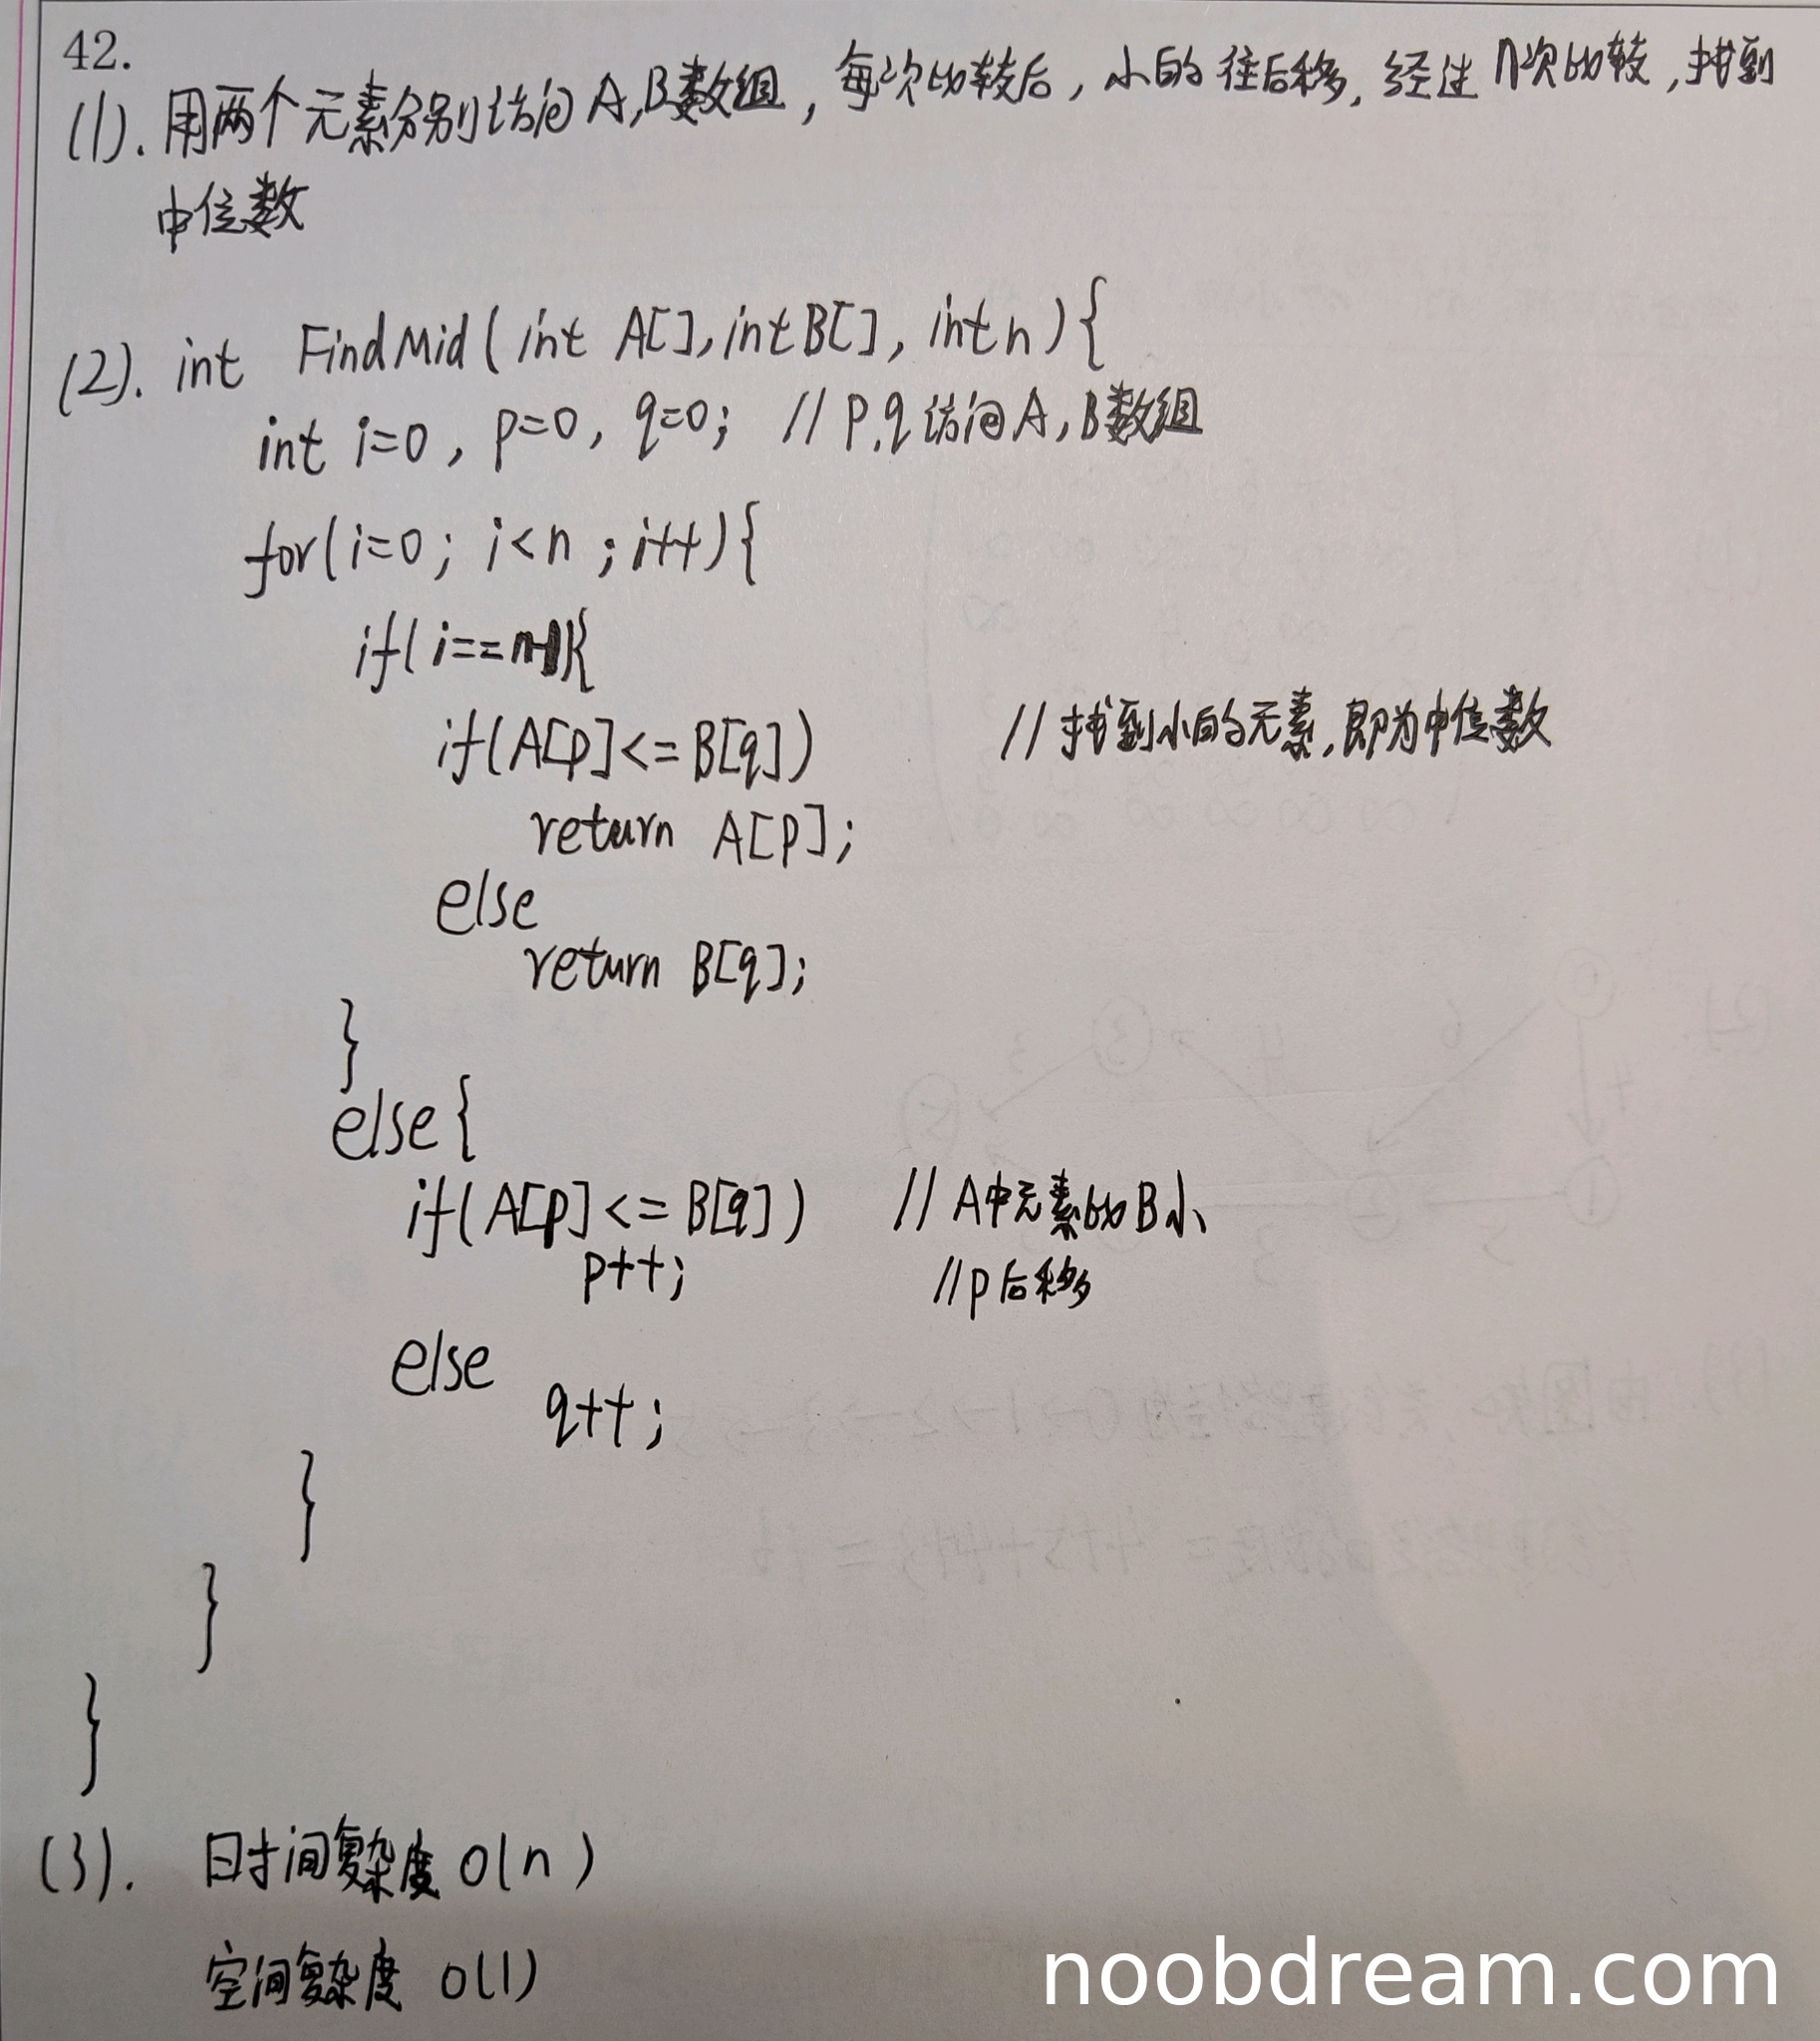 42.
(1). 用两个元素分别访问A,B数组，每次比较后，小的往后移，经过n次比较，找到
中位数
(2). int FindMid(int A[], int B[], int n){
int i=0, p=0, q=0; //p.q访问A,B数组
for(i=0; i<n; i++){
if(i==n-1){
if(A[p]<=B[q]) //找到小的元素，即为中位数
return A[p];
else
return B[q];
}
else{
if(A[p]<=B[q]) //A中元素比B小
p++; //p后移
else
q++;
}
}
}
(3). 时间复杂度 O(n)
空间复杂度 O(1)
noobdream.com